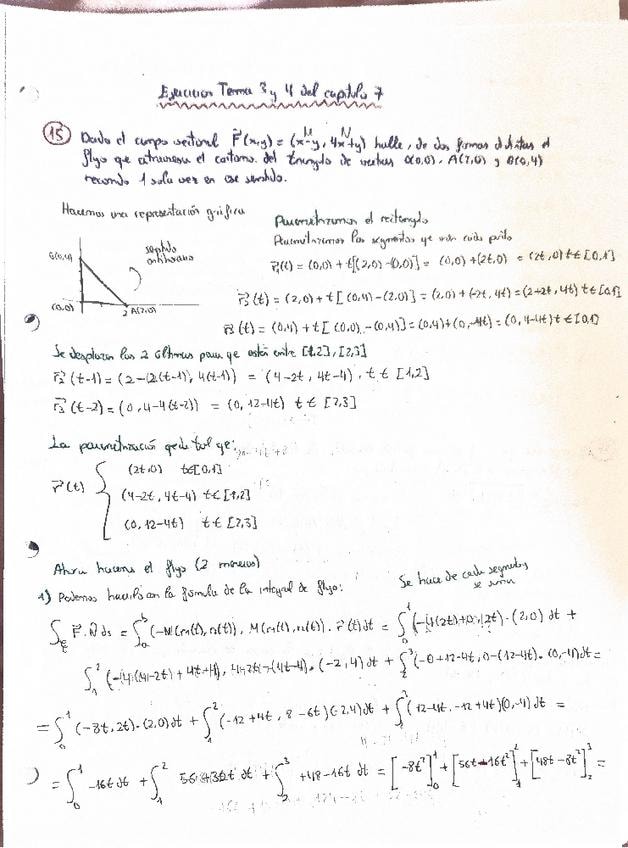 Ejercicios Tema 3 y 4 del capitulo 7
15 Dado el campo vectorial F(x,y) = (x-y, 4x+y) halle, de dos formas distintas el
M N
flujo que atraviesa el contorno del triangulo de vertices O(0,0), A(2,0) y B(0,4)
recorrido 1 sola vez en ese sentido.
Hacemos una representación gráfica
B(0,4)
sentido
antihorario
(0,0)
2 A(2,0)
Parametrizamos el rectangulo
Parametrizamos los segmentos que unen cada punto
r₁(t) = (0,0) + t[(2,0)-(0,0)] = (0,0)+(2t,0) = (2t,0) t∈[0,1]
r₂(t) = (2,0) + t[(0,4)-(2,0)] = (2,0)+(-2t,4t) = (2-2t,4t) t∈[0,1]
r₃(t) = (0,4) + t[(0,0)-(0,4)] = (0,4)+(0,-4t) = (0,4-4t) t∈[0,1]
Se desplazan los 2 últimos para que estén entre [1,2], [2,3]
r₂(t-1) = (2-(2(t-1), 4(t-1)) = (4-2t, 4t-4), t∈[1,2]
r₃(t-2) = (0, 4-4(t-2)) = (0, 12-4t) t∈[2,3]
La parametrización queda tal que:
r(t) { (2t,0) t∈[0,1]
(4-2t, 4t-4) t∈[1,2]
(0, 12-4t) t∈[2,3]
Ahora hacemos el flujo (2 maneras)
1) Podemos hacerlo con la fórmula de la integral de flujo:
Se hace de cada segmento
se suma
∫ F·N ds = ∫ (-N(m(t),n(t)), M(m(t),n(t))·r'(t)dt = ∫₀¹ (-(4(2t)+0, 2t)·(2,0) dt +
∫₁² (-(4(4-2t)+4t-4), 4-2t-(4t-4)·(-2,4) dt + ∫₂³ (-0+12-4t, 0-(12-4t)·(0,-4)dt =
= ∫₀¹ (-8t,2t)·(2,0)dt + ∫₁² (-12+4t, 8-6t)(-2,4)dt + ∫₂³ (12-4t,-12+4t)(0,-4)dt =
= ∫₀¹ -16t dt + ∫₁² 56-32t dt + ∫₂³ +48-16t dt = [-8t²]₀¹ + [56t-16t²]₁² + [48t-8t²]₂³ =